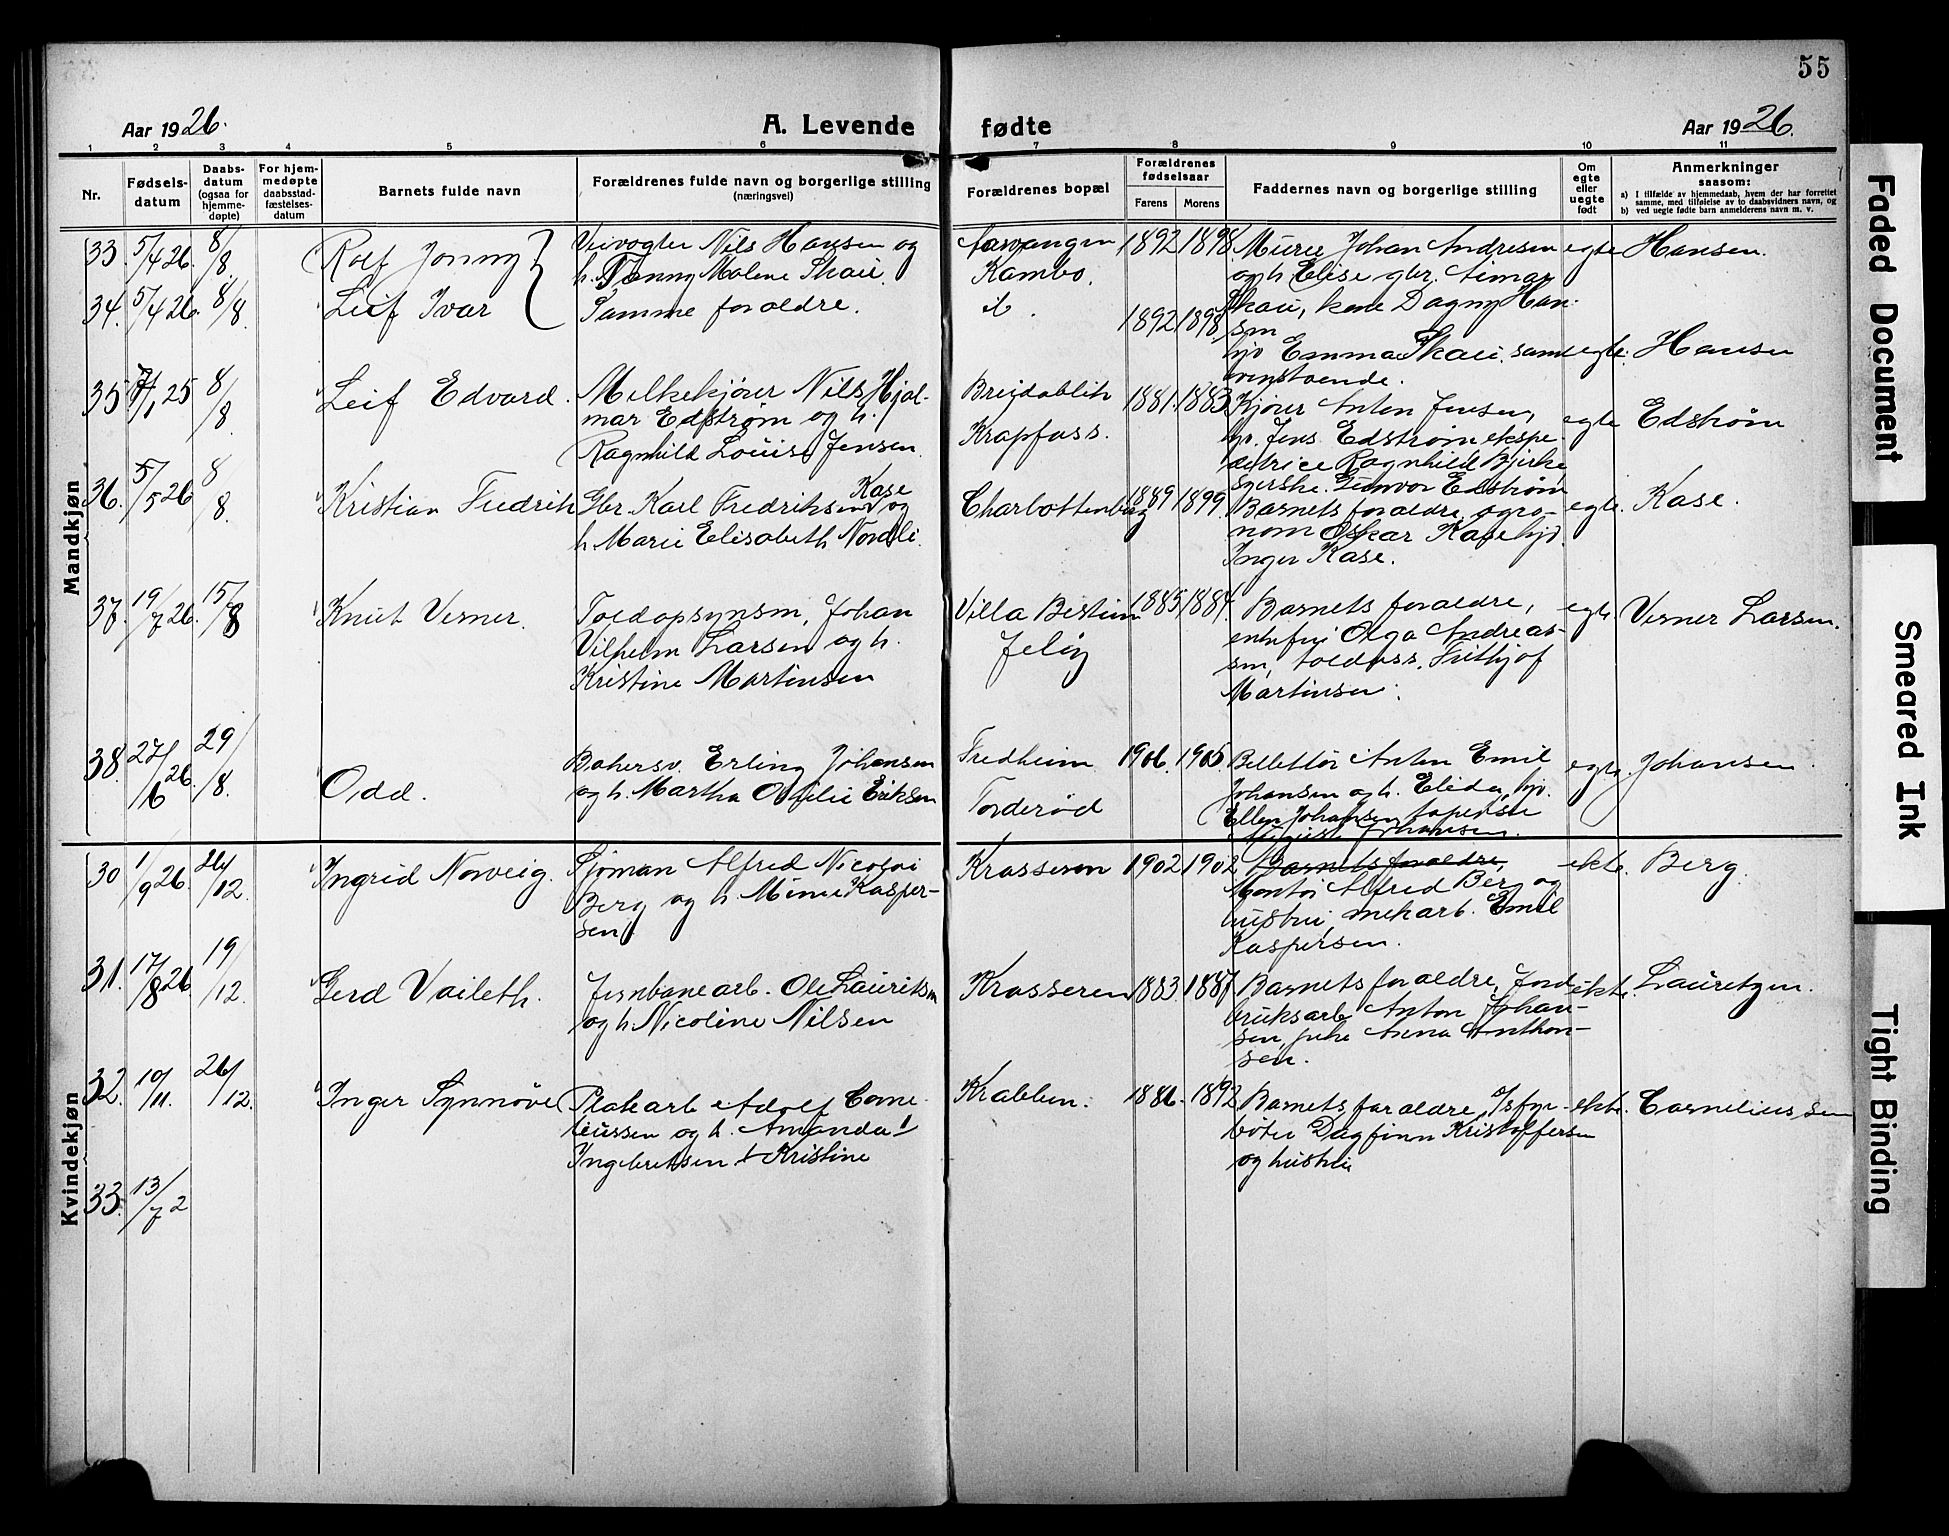 55
Aar 1926.
A. Levende fødte
Aar 1926.
1 2 3 4 5 6 7 8 9 10 11
Nr.
Fødsels-
datum
Daabs-
datum
(ogsaa for
hjemme-
døpte)
For hjem-
medøpte
daabsstad-
fæstelses-
datum
Barnets fulde navn
Forældrenes fulde navn og borgerlige stilling
(næringsvei)
Forældrenes bopæl
Forældrenes
fødselsaar
Farens
Morens
Faddernes navn og borgerlige stilling
Om
egte
eller
uegte
født
Anmerkninger
saasom:
a) I tilfælde av hjemmedaab, hvem der har forrettet
samme, med tilføielse av to daabsvidners navn, og
b) ved uegte fødte barn anmelderens navn m. v.
Mandkjøn
33. 5/4 26. 8/8.
Rolf Jonny
Veivogter Nils Hansen og
h. Jenny Malene Skau.
Kambo.
1892 1898
Murer Johan Andresen
og h. Elise gbr. Einar
Skau, kone Dagny Han-
sen
egte
Hansen.
34. 5/4 26. 8/8.
Leif Ivar
Samme foraldre.
1892 1898
hjv Emma Skau. sam
ovenstoende.
egte.
Hansen
35 25 8/8.
Leif Edvard.
Melkekjører Nils Hjal-
mar Edstrøm og h.
Ragnhild Louise Jensen.
Breidablik
Krapfoss.
1881. 1883
Kjører Anton Jensen,
hjv. Jens Edstrøm ekspe-
ditrice Ragnhild Bjerke
syerske. Gunvor Edstrøm
egte
Edstrøm
36. 5/5 26 8/8.
Kristian Fredrik
Gbr. Karl Fredriksen Kase og
h. Marie Elisabeth Nordli.
Charlottenberg
1889 1899.
Barnets foraldre, agro-
nom Oskar Kase hjv.
Inger Kase.
egte.
Kase.
37. 19/7 26. 15/8
Knut Verner.
Toldopsynsm, Johan
Vilhelm Larsen og h.
Kristine Martinsen
Villa
Jeløy
1885 1884.
Barnets foraldre,
enkefru Olga Andreas-
sen, toldass. Frithjof
Martinsen.
egte
Verner Larsen.
38. 27/6 26 29/8.
Odd.
Bakersv. Erling Johansen
og h. Martha Othilie Eriksen
Fredheim
Torderød
1906. 1905.
Billettør Anton Emil
Johansen og h. Elida, hjv.
Ellen Johansen,
Johansen.
egte.
Johansen.
Kvindekjøn
30 1/9 26. 26/12.
Ingrid Norveig.
Sjøman Alfred Nicolai
Berg og h. Minnie Kasper-
sen.
Krosseren
1902 1902
Barnets foraldre,
Montør Alfred Berg og
hustru, mek arb. Emil
Kaspersen.
ekte.
Berg.
31. 17/8 26. 19/12.
Gerd Vaileth.
Jernbanearb. Ole Lauritsen
og h. Nicoline Nilsen
Krosseren
1883. 1887
Barnets foraldre, Jord-
bruksarb Anton Johan-
sen, frke Anna Anthon-
sen.
ekte.
Lauretzen.
32. 10/11. 26/12.
Inger Synnøve
Platearb Adolf Corne-
liussen og h. Amanda
Ingebretsen + Kristine
Krabben.
1886. 1892
Barnets foraldre, Isfyr-
bøter Dagfinn Kristoffersen
og hustru
ekte.
Corneliussen
33. 13/7 2
Faded Document
Smeared Ink
Tight Binding